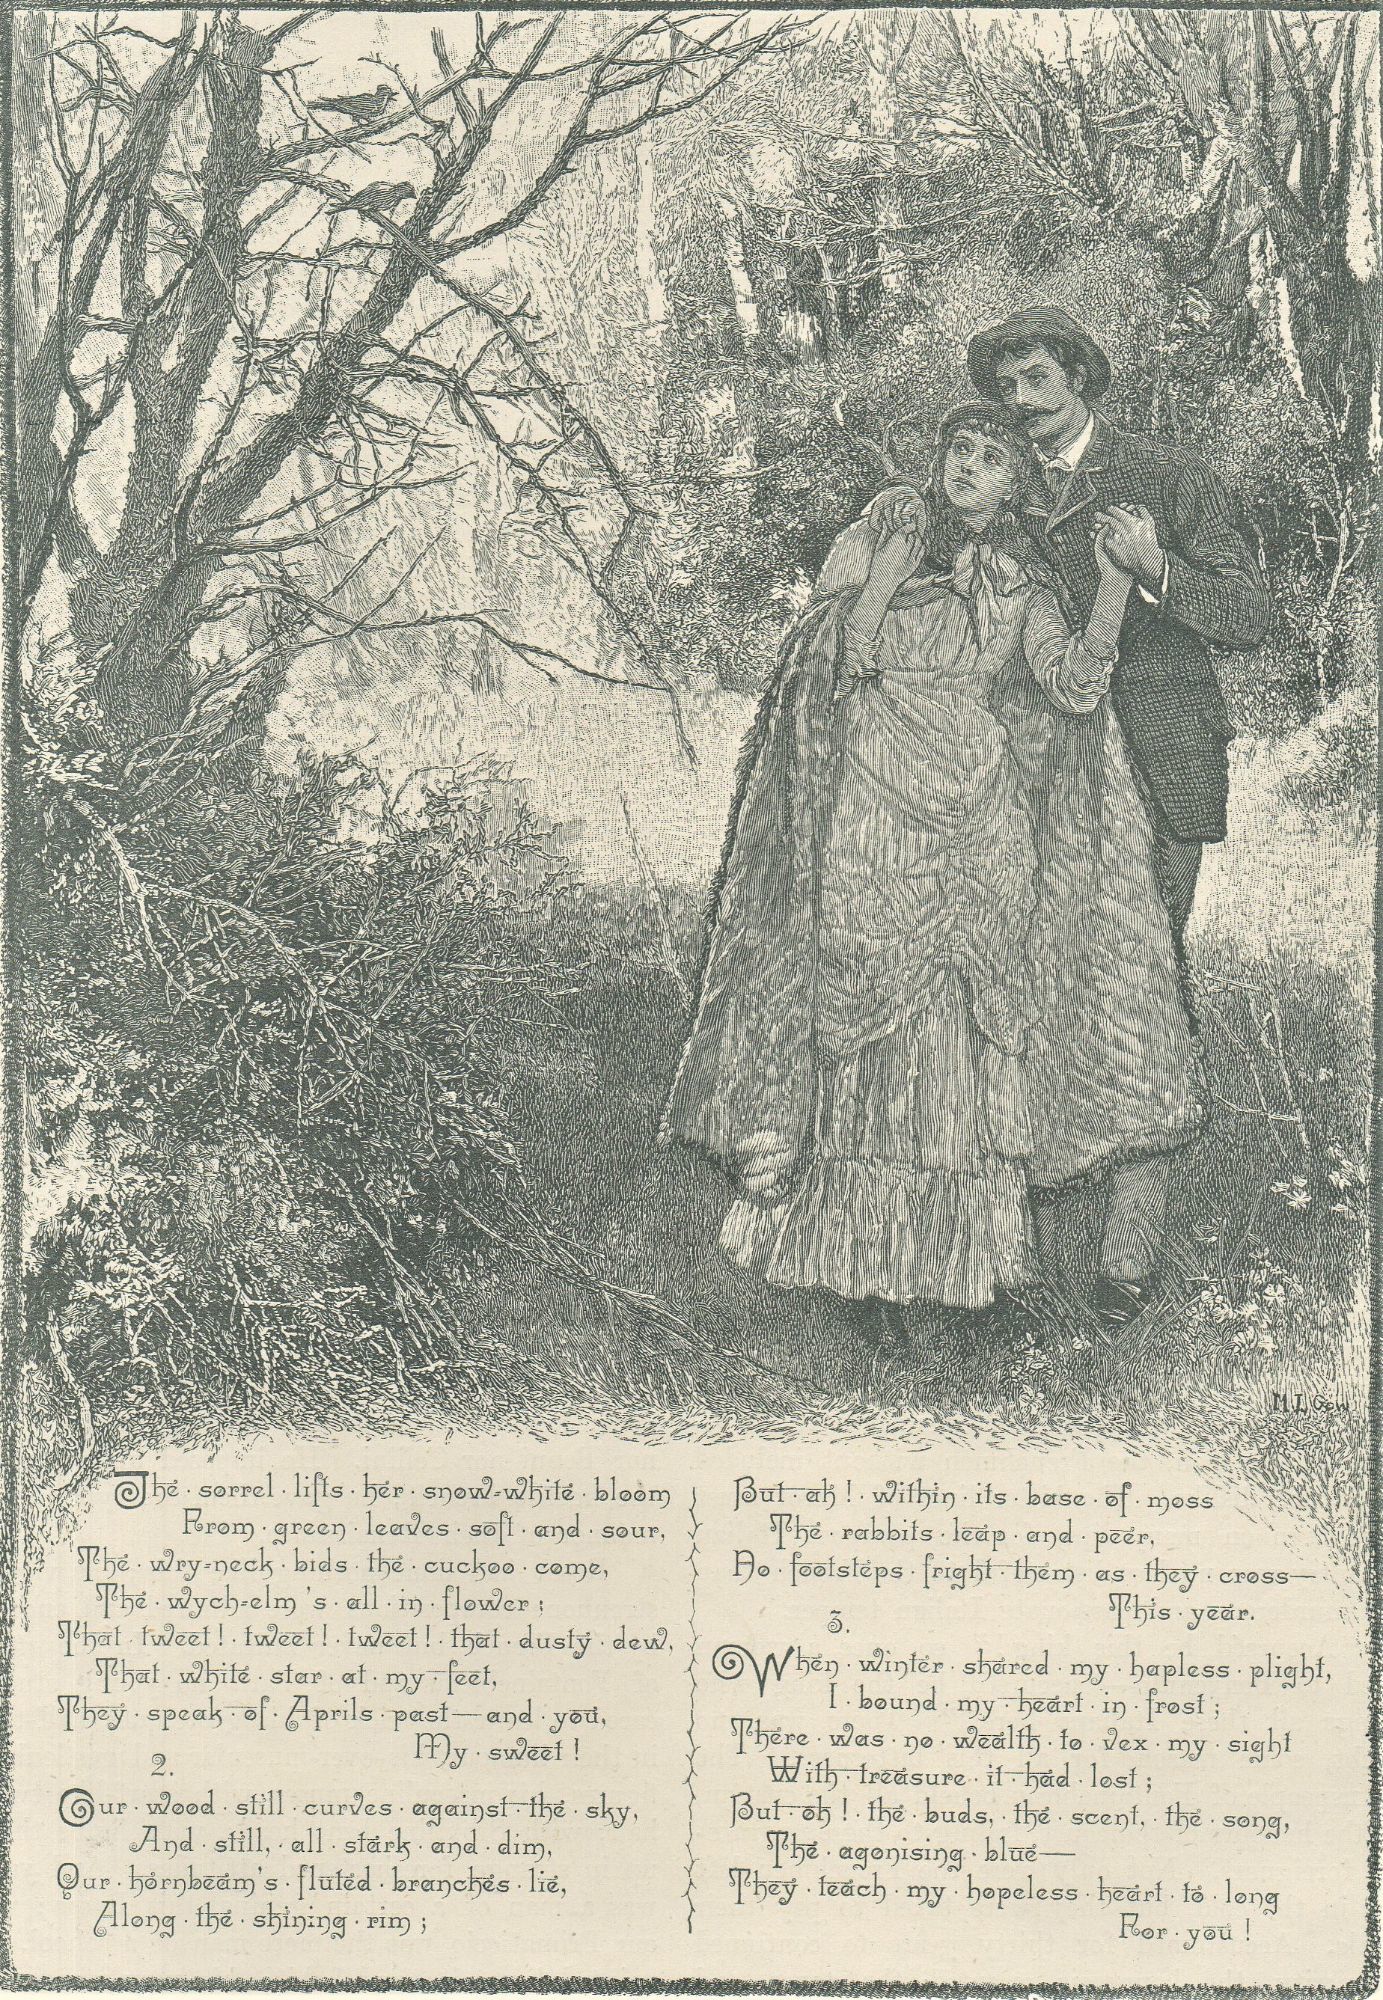 M L Gow
The sorrel lifts her snow-white bloom
From green leaves soft and sour,
The wry-neck bids the cuckoo come,
The wych-elm's all in flower;
That tweet! tweet! tweet! that dusty dew,
That white star at my feet,
They speak of Aprils past—and you,
My sweet!
2.
Our wood still curves against the sky,
And still, all stark and dim,
Our hornbeam's fluted branches lie,
Along the shining rim;
But ah! within its base of moss
The rabbits leap and peer,
No footsteps fright them as they cross—
This year.
3.
When winter shared my hapless plight,
I bound my heart in frost;
There was no wealth to vex my sight
With treasure it had lost;
But oh! the buds, the scent, the song,
The agonising blue—
They teach my hopeless heart to long
For you!